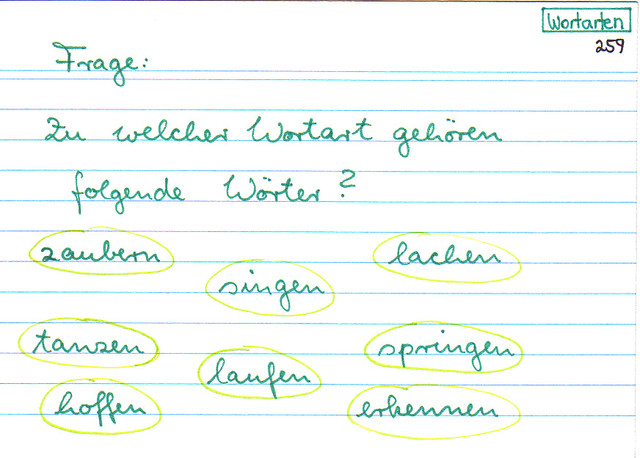 Wortarten
259
Frage:
Zu welcher Wortart gehören
folgende Wörter?
zaubern
lachen
singen
tanzen
springen
laufen
hoffen
erkennen